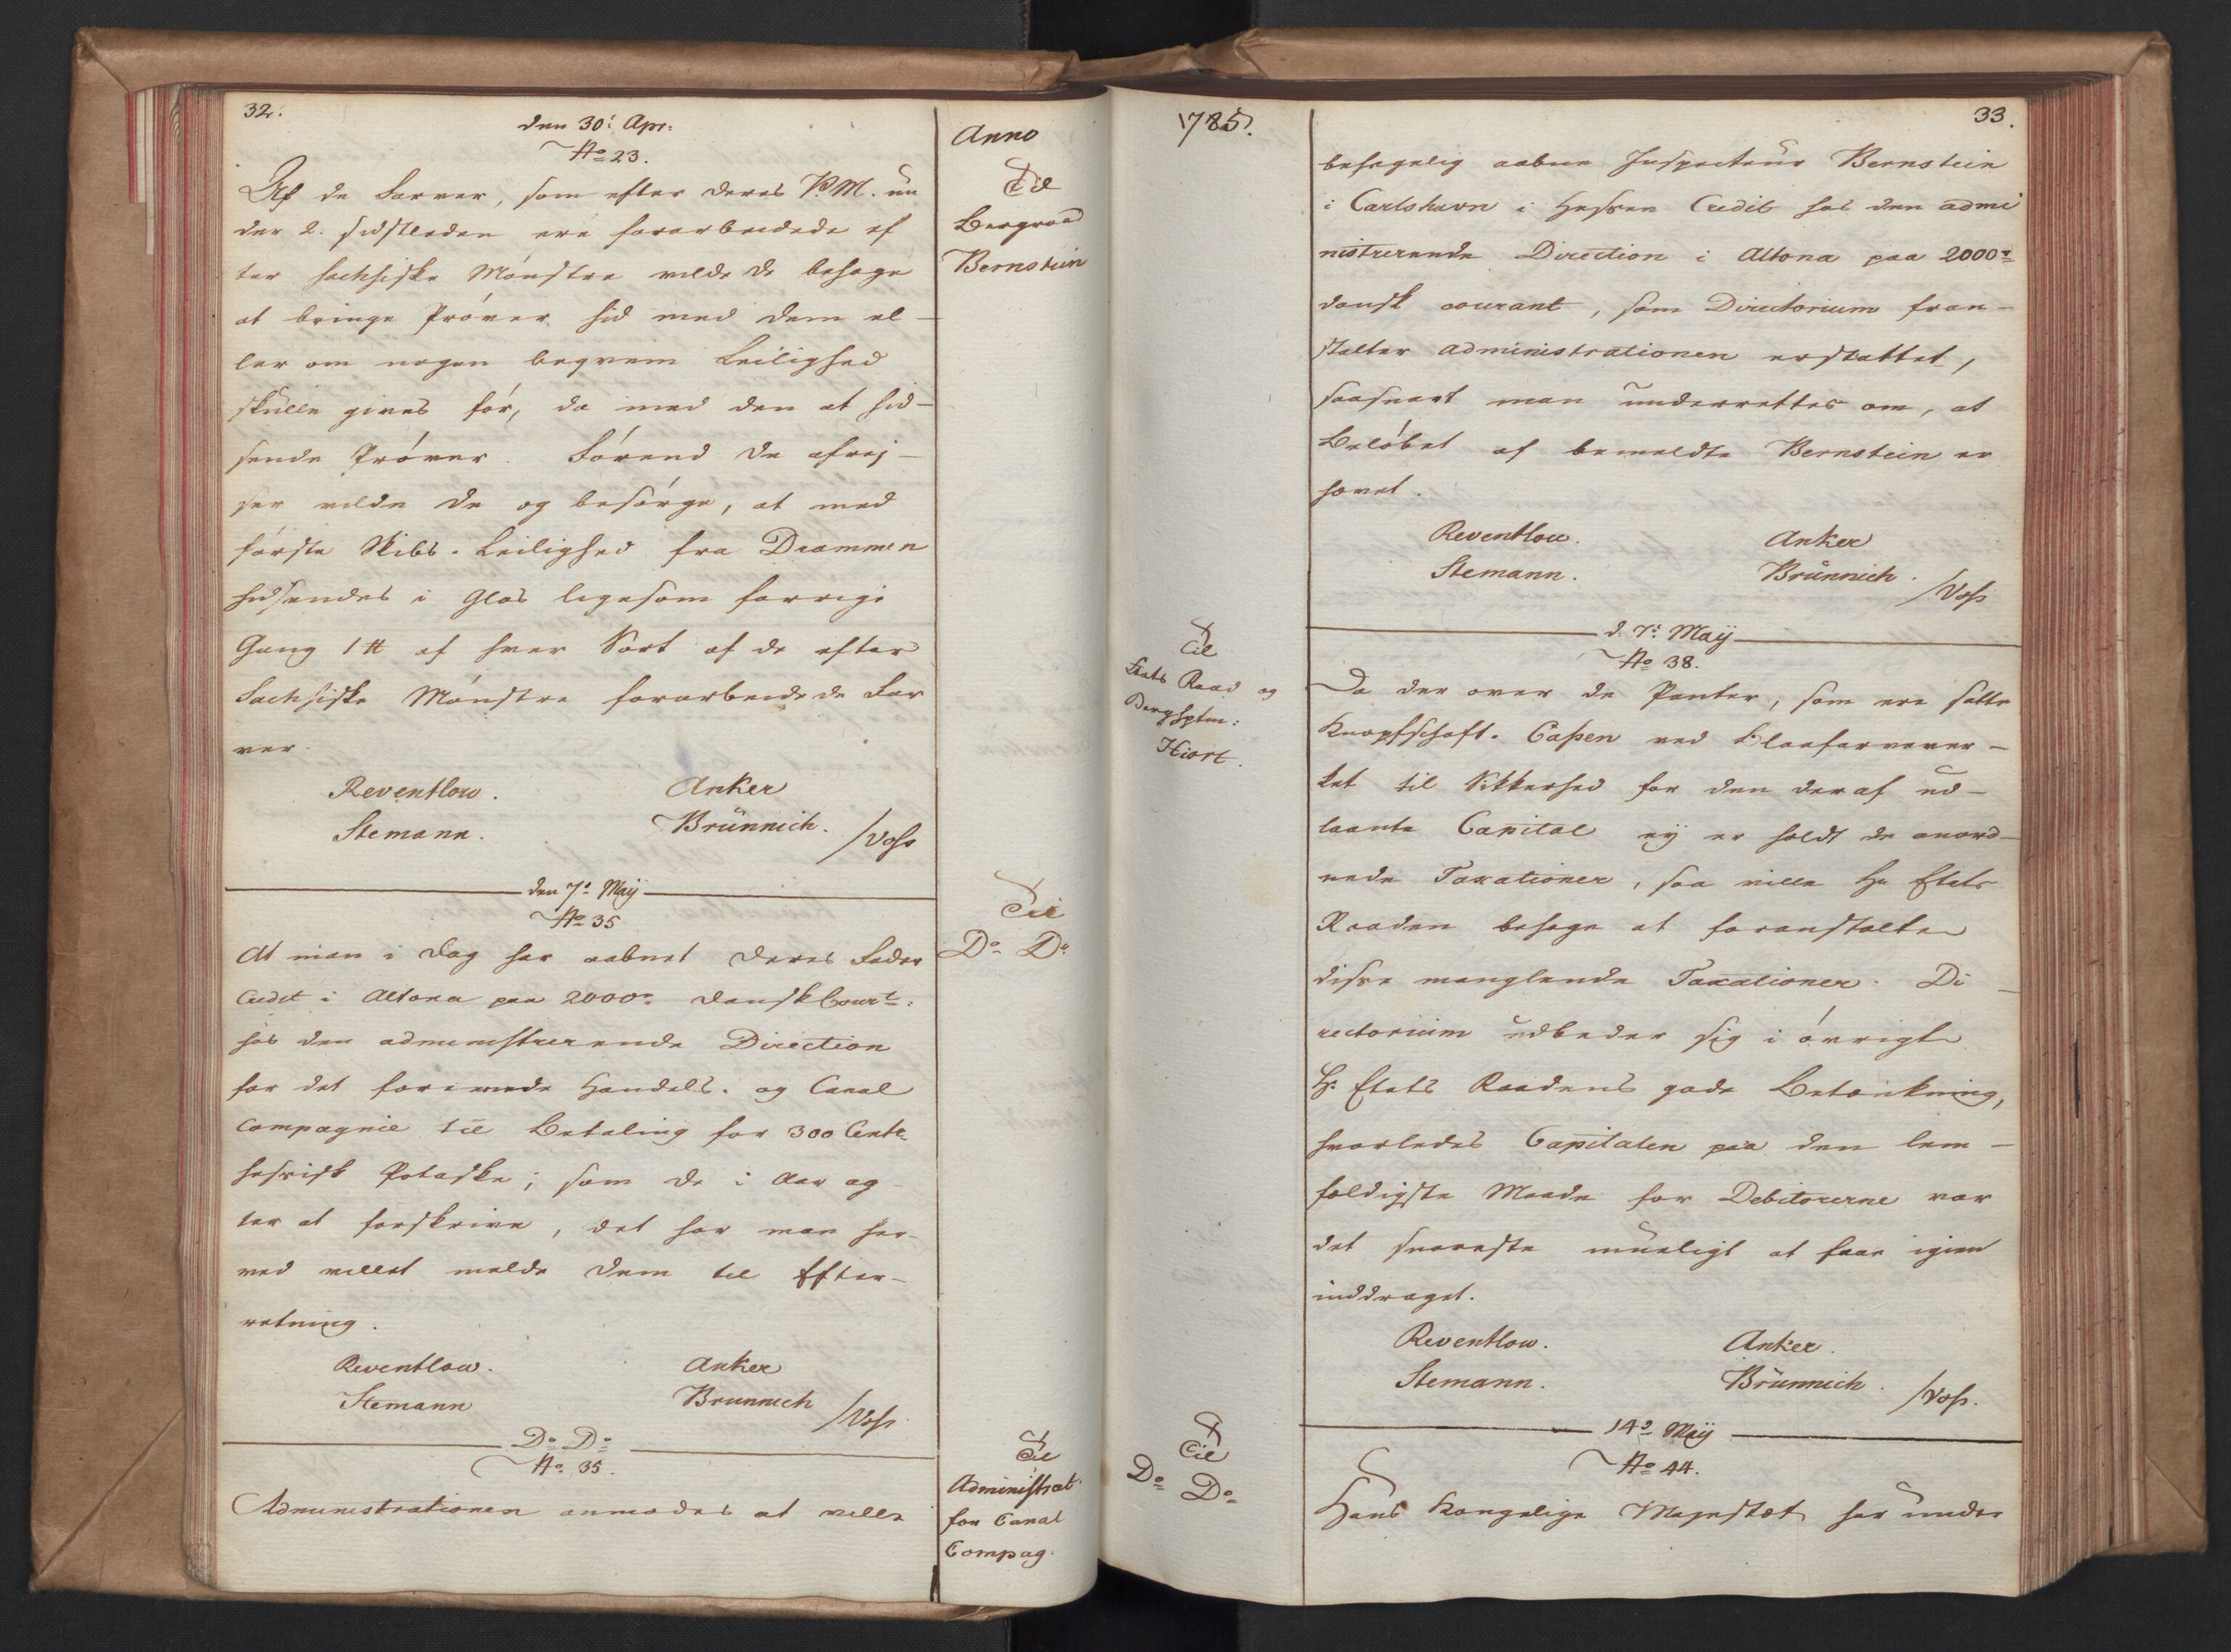 32.
den 30: Apr:
No 23.
Anno
Til
Bergraad
Bernstein
Af de Farver, som efter deres P.M. un
der 2. sidstleden ere forarbeidede ef
ter sachsiske Mónstre vilde de besøge
at bringe Próver hid med dem el-
ler om nogen beqvem Leilighed
skulle gives fór, da med den at hid-
sende Próver. Fórend de afrej-
ser vilde de og besórge, at med
fórste Skibs-Leilighed fra Drammen
hidsendes i Glas ligesom forrige
Gang 1 ℔ af hver Sort af de efter
Sachsiske Mónstre forarbeidede Far
ver.
Reventlow. Anker
Stemann. Brünnich. /Voss
den 7de Maÿ
No 35
Til
Do Do
At man i Dag har aabnet deres Fader
Credit i Altona paa 2000r dansk Cour:
hos den administrerende Direction
for det forenede Handels- og Canal
Compagnie til Betaling for 300 Centr
hessisk Potaske; som de i Aar ag-
ter at forskrive, det har man her-
ved villet melde dem til Efter-
retning.
Reventlow. Anker
Stemann Brunnich /Voss
Do Do
No 35.
Til
Administrat:
for Canal
Compag.
Administrationen anmodes at ville
1785.
33.
behagelig aabne Inspecteur Bernstein
i Carlshavn i Hessen Credit hos den admi
nistrerende Direction i Altona paa 2000r
dansk courant, som Directorium fran-
stalter administrationen erstattet,
saasnart man underrettes om, at
Belóbet af bemeldte Bernstein er
hævet.
Reventlow. Anker
Stemann. Brünnich. /Voss
d. 7: Maÿ
No 38.
Til
Etats Raad og
Berghptm:
Hiort.
Da der over de Panter, som ere satte
Knapschaft-Cassen ved Blaafarvever-
ket til Sikkerhed for den deraf ud-
laante Capital eÿ er holdt de anord-
nede Taxationer, saa ville Hr Etats
Raaden behage at foranstalte
disse manglende Taxationer. Di-
rectorium udbeder sig i óvrigt
Hr Etats Raadens gode Betænkning,
hvorledes Capitalen paa den lem-
fældigste Maade for Debitorerne var
det snareste mueligt at faae igien
inddraget.
Reventlow. Anker.
Stemann. Brünnich. /Voss.
14de Maÿ
No 44.
Til
Do Do
Hans Kongelige Majestæt har under